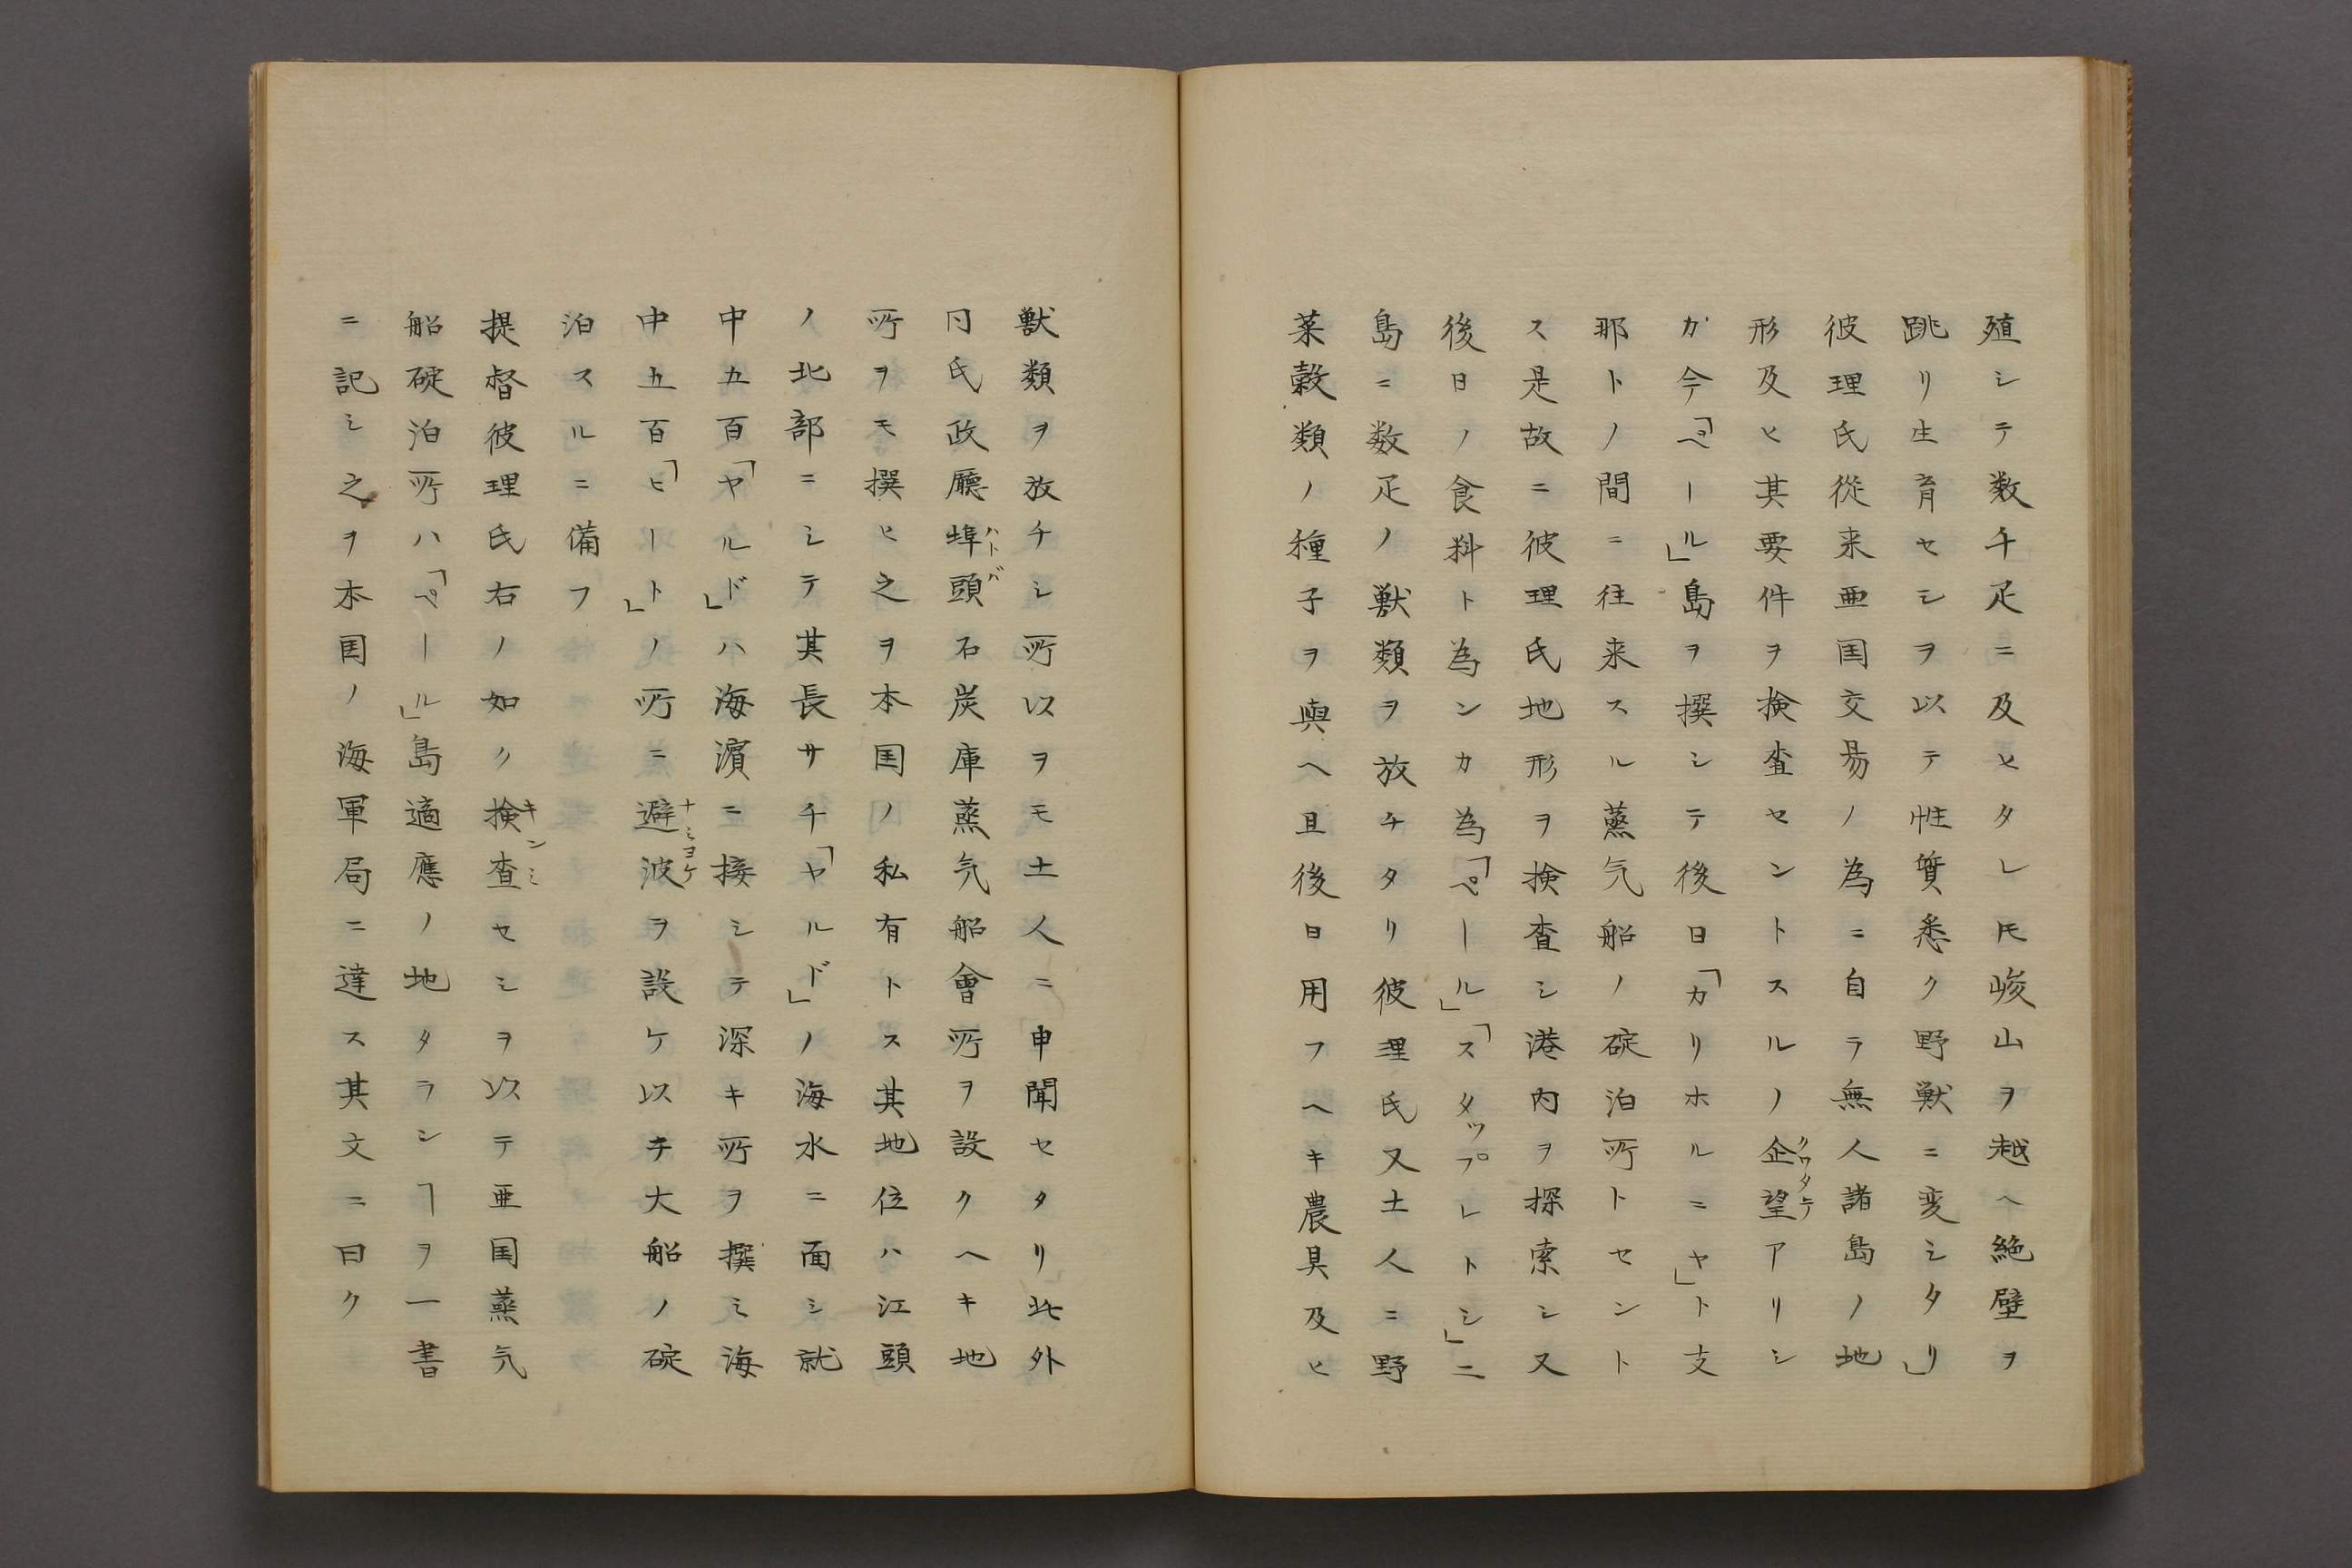 殖シテ数千疋ニ及ヒタレ𪜈峻山ヲ越ヘ絶壁ヲ
跳リ生育セシヲ以テ性質悉ク野獣ニ変シタリ」
彼理氏從来亜国交易ノ為ニ自ラ無人諸島ノ地
形及ヒ其要件ヲ検査セントスルノ企望クワタテアリシ
カ今「ペール」島ヲ撰シテ後日「カリホルニヤ」ト支
那トノ間ニ往来スル蒸気船ノ碇泊所トセント
ス是故ニ彼理氏地形ヲ検査シ港内ヲ探索シ又
後日ノ食料ト為ンカ為「ペール」「スタップレトシ」二
島ニ数疋ノ獣類ヲ放チタリ彼理氏又土人ニ野
菜穀類ノ種子ヲ與ヘ且後日用フヘキ農具及ヒ
獣類ヲ放チシ所以ヲモ土人ニ申聞セタリ此外
同氏政廳埠頭ハトバ石炭庫蒸気船會所ヲ設クヘキ地
所ヲモ撰ヒ之ヲ本国ノ私有トス其地位ハ江頭
ノ北部ニシテ其長サ千「ヤルド」ノ海水ニ面シ就
中五百「ヤルド」ハ海濱ニ接シテ深キ所ヲ撰ミ海
中五百「ヒート」ノ所ニ避波ナミヨケヲ設ケ以テ大船ノ碇
泊スルニ備フ
提督彼理氏右ノ如ク検査キンミセシヲ以テ亜国蒸気
船碇泊所ハ「ペール」島適應ノ地タラシヿヲ一書
ニ記シ之ヲ本国ノ海軍局ニ達ス其文ニ曰ク